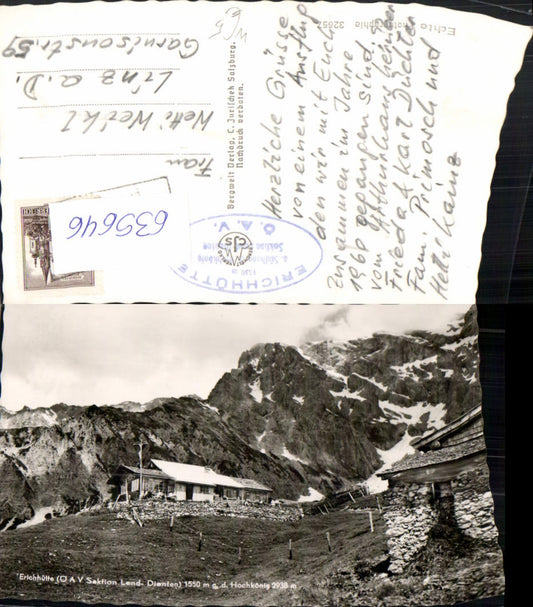 Echte Photographie 32852
Herzliche Grüsse
von einem Ausflug
den wir mit Euch
zusammen im Jahre
1960 gegangen sind.
vom Arthurhaus
Frieda & Karl
Fam. Primosch und
Helli Hainz
Bergwelt Verlag, C. Jurischek Salzburg.
Nachdruck verboten.
Frau
Netti Weikl
Linz a.D.
Garnisonstr. 59
635646
ERICHHÜTTE
Ö.A.V.
Erichhütte (Ö A V Sektion Lend-Dienten) 1550 m g. d. Hochkönig 2938 m